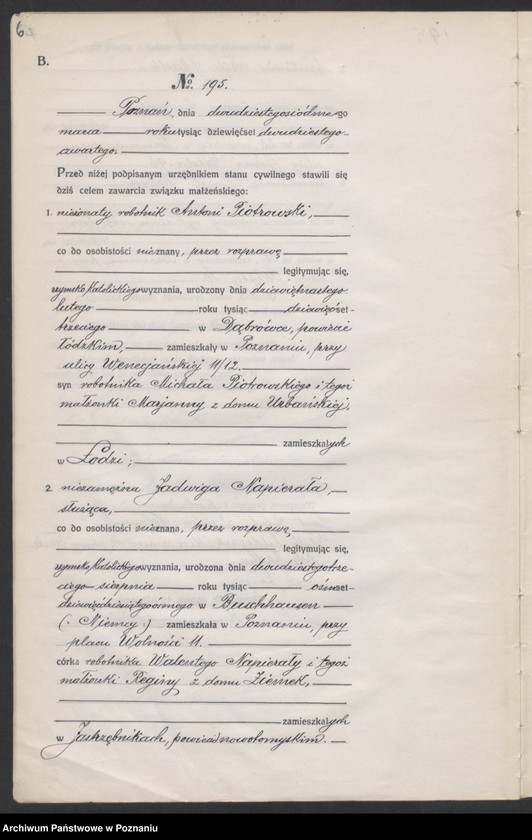 6
B.
No. 195.
Poznań, dnia dwudziestegosiódmego
marca rokutysiąc dziewięćset dwudziestego-
czwartego.
Przed niżej podpisanym urzędnikiem stanu cywilnego stawili się
dziś celem zawarcia związku małżeńskiego:
1. nieżonaty robotnik Antoni Piotrowski,
co do osobistości nieznany, przez rozprawę
legitymując się,
rzymsko katolickiego wyznania, urodzony dnia dziewiętnastego
lutego roku tysiąc dziewięćset-
trzeciego w Dąbrówce, powiecie
Łódzkim, zamieszkały w Poznaniu, przy
ulicy Wenecjańskiej 11/12.
syn robotnika Michała Piotrowskiego i tegoż
małżonki Marjanny z domu Urbańskiej,
zamieszkałych
w Łodzi;
2. niezamężna Jadwiga Napierała,
służąca,
co do osobistości nieznana, przez rozprawę
legitymując się,
rzymsko katolickiego wyznania, urodzona dnia dwudziestegotrze-
ciego sierpnia roku tysiąc ośmset-
dziewięćdziesiątego ósmego w Beeckhausen
(Niemcy) zamieszkała w Poznaniu, przy
placu Wolności 11.
córka robotnika Walentego Napierały i tegoż
małżonki Reginy z domu Ziemek,
zamieszkałych
w Jastrzębnikach, powiecie nowotomyskim.
Archiwum Państwowe w Poznaniu